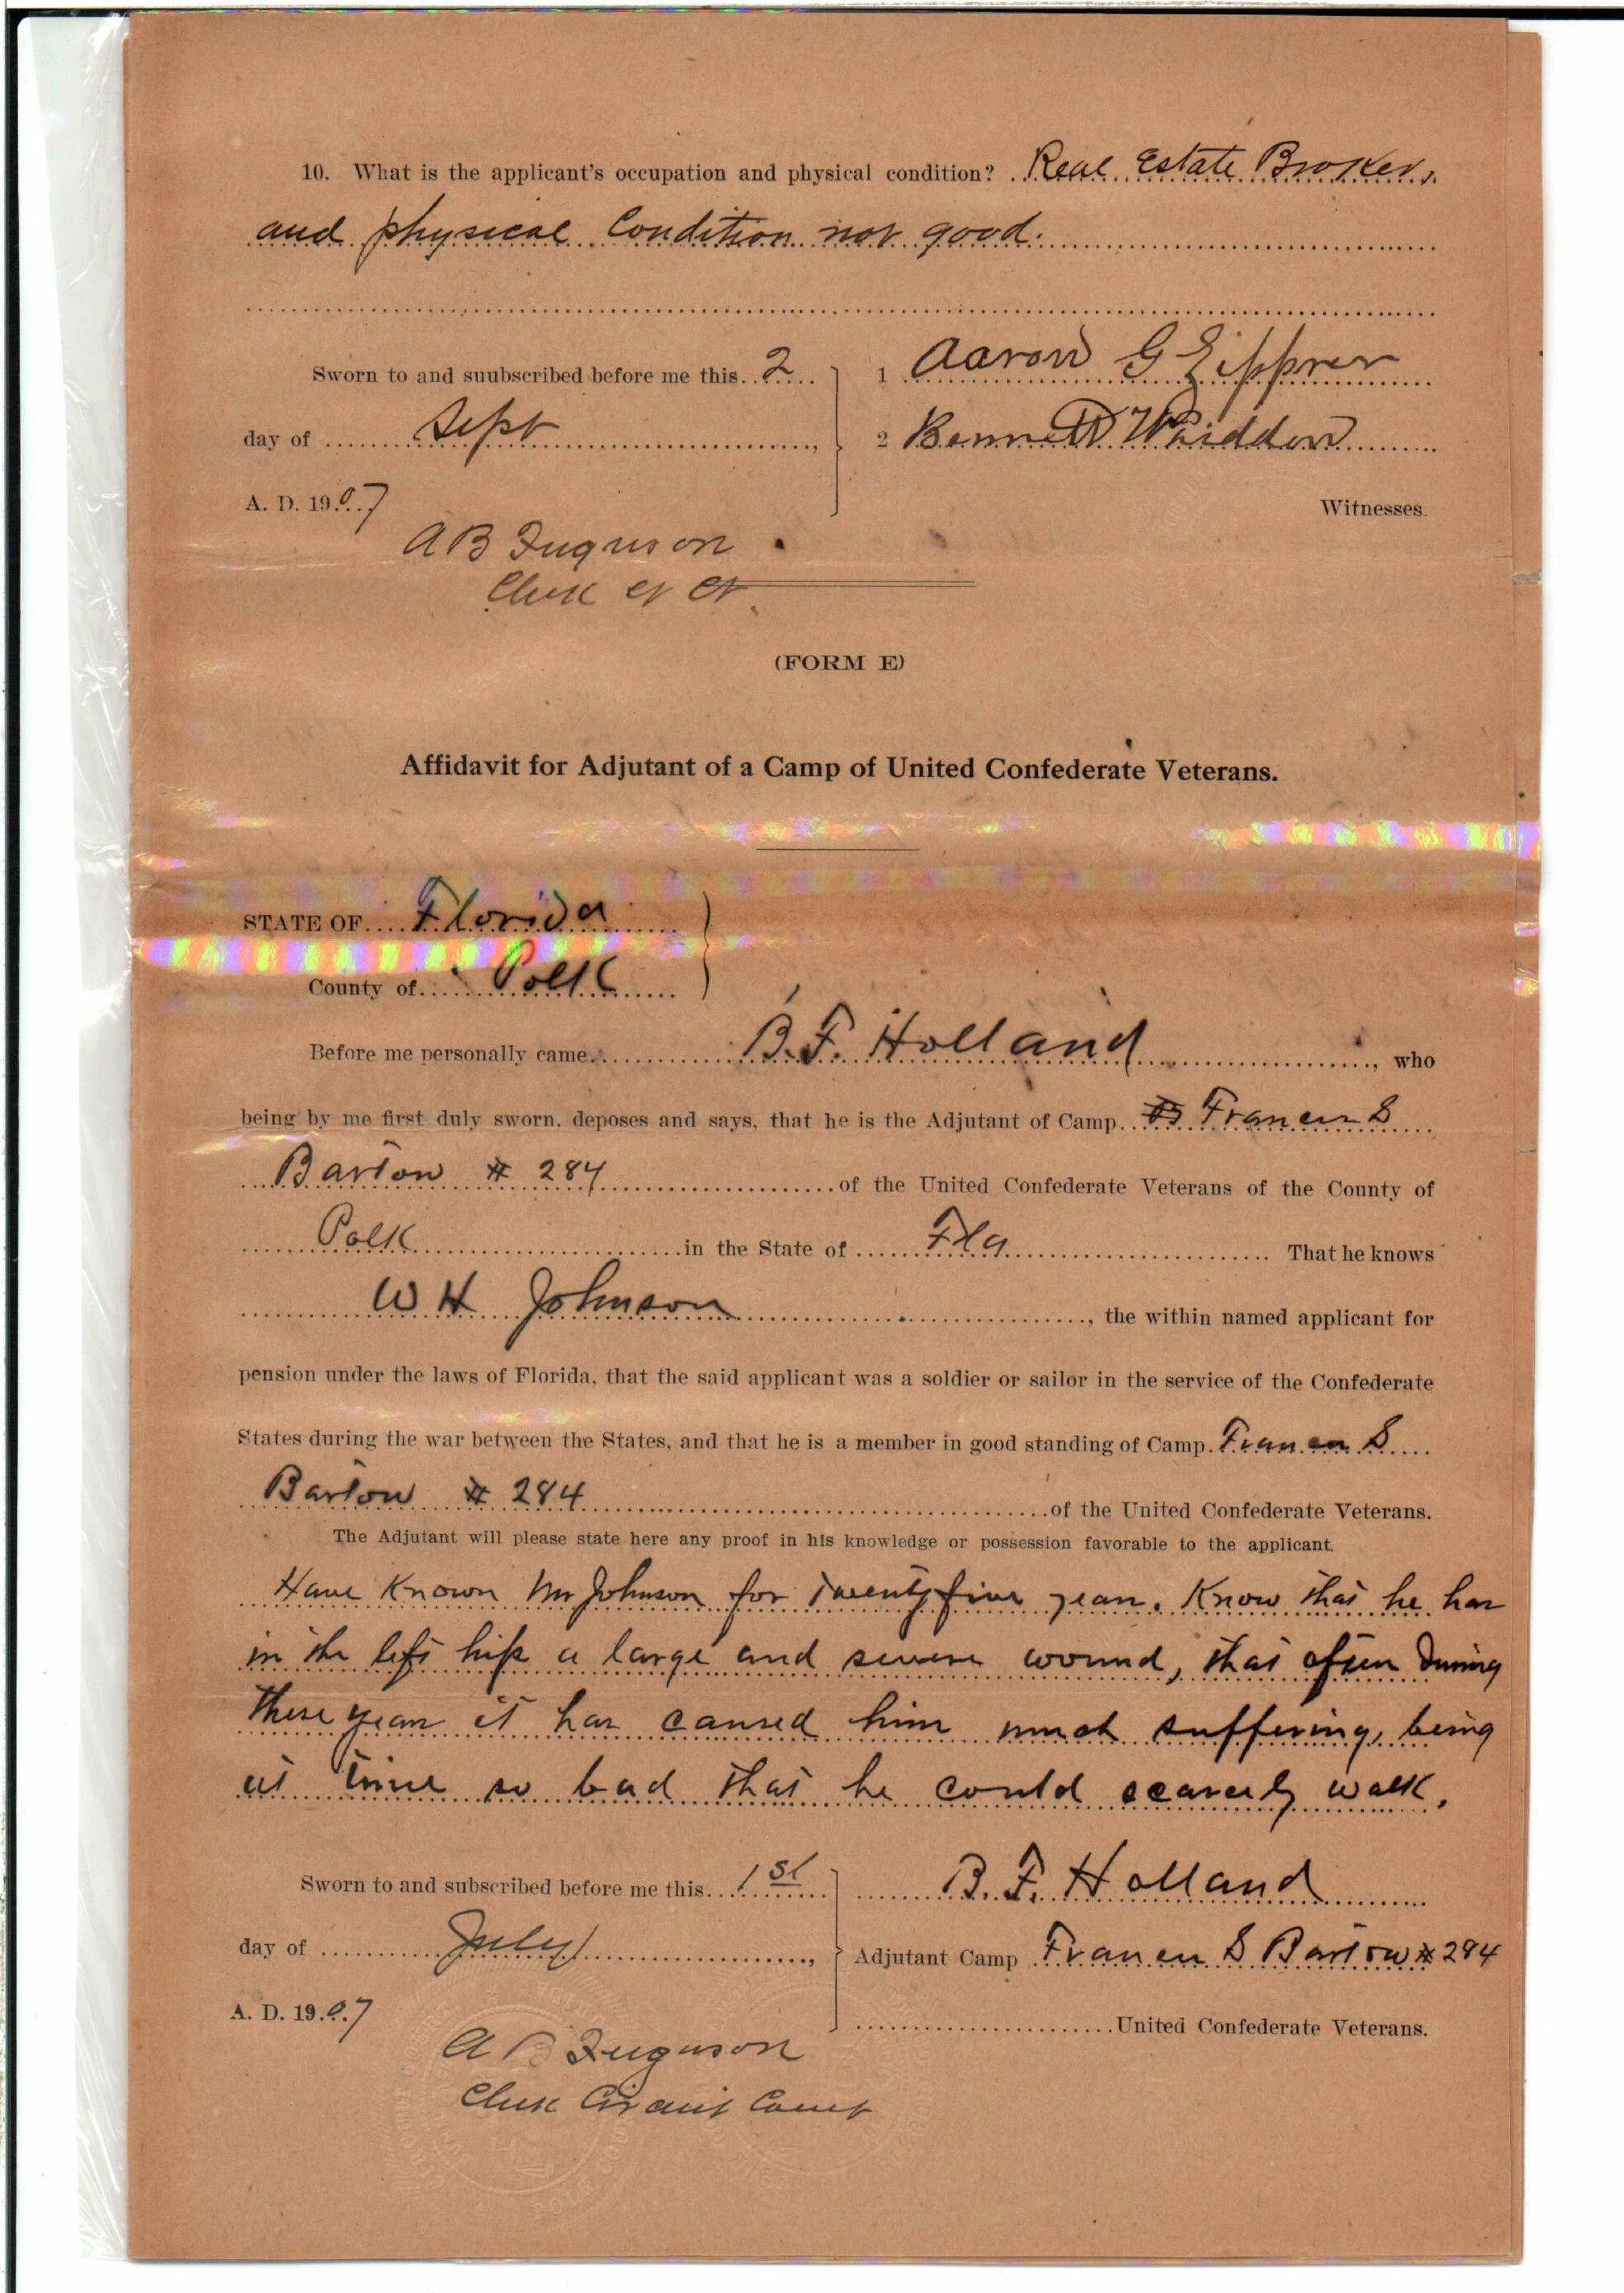 10. What is the applicant's occupation and physical condition? Real Estate Broker,
and physical Condition not good.
Sworn to and suubscribed before me this 2
1 Aaron G Zipprer
day of Sept,
2 Bennett Whidden
A. D. 1907
Witnesses.
A B Ferguson
Clerk Ct Ct
(FORM E)
Affidavit for Adjutant of a Camp of United Confederate Veterans.
STATE OF Florida
County of Polk
Before me personally came B. F. Holland, who
being by me first duly sworn, deposes and says, that he is the Adjutant of Camp Francis S
Bartow # 284 of the United Confederate Veterans of the County of
Polk in the State of Fla That he knows
W H Johnson, the within named applicant for
pension under the laws of Florida, that the said applicant was a soldier or sailor in the service of the Confederate
States during the war between the States, and that he is a member in good standing of Camp Francis S
Bartow # 284 of the United Confederate Veterans.
The Adjutant will please state here any proof in his knowledge or possession favorable to the applicant.
Have Known Mr Johnson for Twenty five years. Know that he has
in the left hip a large and severe wound, that often During
these years it has caused him much suffering, being
at time so bad that he could scarcely walk.
Sworn to and subscribed before me this 1st
B. F. Holland
day of July,
Adjutant Camp Francis S Bartow # 284
A. D. 1907
United Confederate Veterans.
A B Ferguson
Clerk Circuit Court